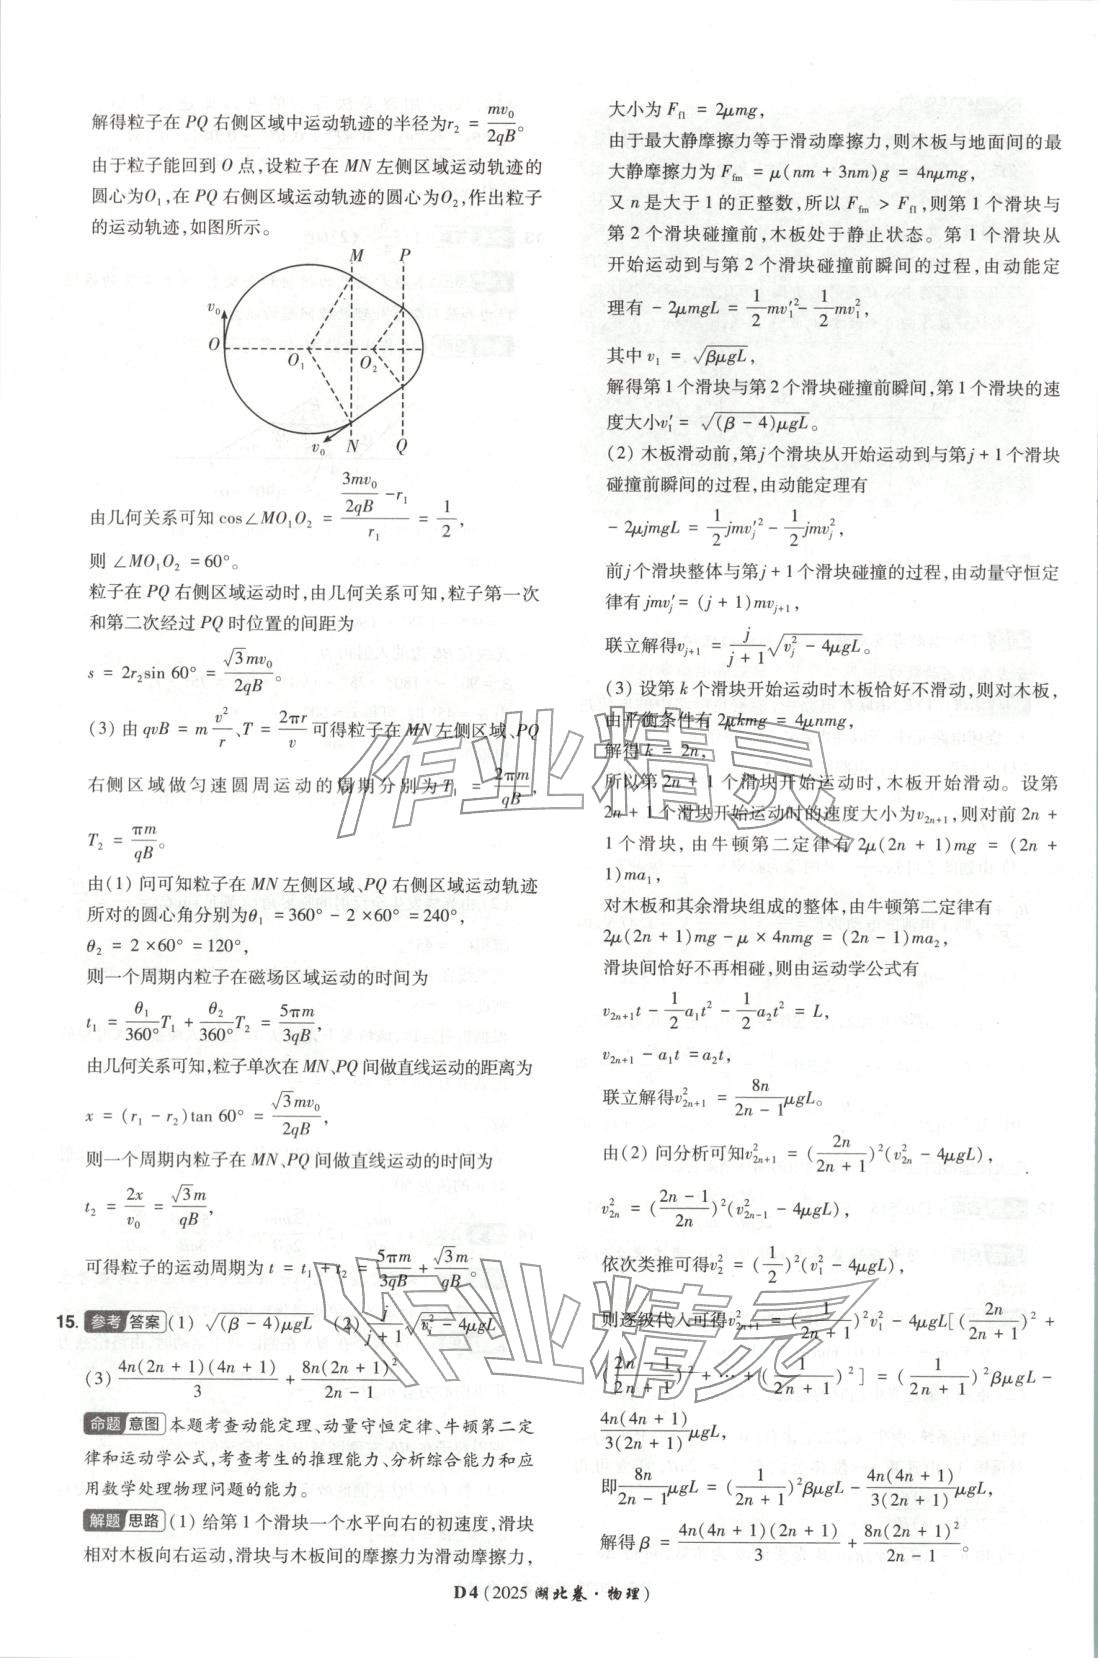 解得粒子在 PQ 右侧区域中运动轨迹的半径为r₂ = mv₀/2qB。
由于粒子能回到 O 点,设粒子在 MN 左侧区域运动轨迹的
圆心为O₁,在 PQ 右侧区域运动轨迹的圆心为O₂,作出粒子
的运动轨迹,如图所示。
M P
v₀
O O₁ O₂
v₀ N Q
由几何关系可知 cos∠MO₁O₂ = (3mv₀/2qB - r₁)/r₁ = 1/2,
则 ∠MO₁O₂ = 60°。
粒子在 PQ 右侧区域运动时,由几何关系可知,粒子第一次
和第二次经过 PQ 时位置的间距为
s = 2r₂sin 60° = √3mv₀/2qB。
(3) 由 qvB = m v²/r、T = 2πr/v 可得粒子在 MN 左侧区域、PQ
右侧区域做匀速圆周运动的周期分别为 T₁ = 2πm/qB,
T₂ = πm/qB。
由(1) 问可知粒子在 MN 左侧区域、PQ 右侧区域运动轨迹
所对的圆心角分别为θ₁ = 360° - 2 × 60° = 240°,
θ₂ = 2 × 60° = 120°,
则一个周期内粒子在磁场区域运动的时间为
t₁ = θ₁/360° T₁ + θ₂/360° T₂ = 5πm/3qB,
由几何关系可知,粒子单次在 MN、PQ 间做直线运动的距离为
x = (r₁ - r₂)tan 60° = √3mv₀/2qB,
则一个周期内粒子在 MN、PQ 间做直线运动的时间为
t₂ = 2x/v₀ = √3m/qB,
可得粒子的运动周期为 t = t₁ + t₂ = 5πm/3qB + √3m/qB。
15. 参考 答案 (1) √((β - 4)μgL) (2) j/(j + 1) √(vⱼ² - 4μgL)
(3) 4n(2n + 1)(4n + 1)/3 + 8n(2n + 1)²/(2n - 1)
命题 意图 本题考查动能定理、动量守恒定律、牛顿第二定
律和运动学公式,考查考生的推理能力、分析综合能力和应
用数学处理物理问题的能力。
解题 思路 (1) 给第 1 个滑块一个水平向右的初速度,滑块
相对木板向右运动,滑块与木板间的摩擦力为滑动摩擦力,
大小为 F_f1 = 2μmg,
由于最大静摩擦力等于滑动摩擦力,则木板与地面间的最
大静摩擦力为 F_fm = μ(nm + 3nm)g = 4nμmg,
又 n 是大于 1 的正整数,所以 F_fm > F_f1,则第 1 个滑块与
第 2 个滑块碰撞前,木板处于静止状态。第 1 个滑块从
开始运动到与第 2 个滑块碰撞前瞬间的过程,由动能定
理有 - 2μmgL = 1/2 mv₁′² - 1/2 mv₁²,
其中 v₁ = √(βμgL),
解得第 1 个滑块与第 2 个滑块碰撞前瞬间,第 1 个滑块的速
度大小v₁′ = √((β - 4)μgL)。
(2) 木板滑动前,第 j 个滑块从开始运动到与第 j + 1 个滑块
碰撞前瞬间的过程,由动能定理有
- 2μjmgL = 1/2 jmvⱼ′² - 1/2 jmvⱼ²,
前 j 个滑块整体与第 j + 1 个滑块碰撞的过程,由动量守恒定
律有 jmvⱼ′ = (j + 1)mvⱼ₊₁,
联立解得vⱼ₊₁ = j/(j + 1) √(vⱼ² - 4μgL)。
(3) 设第 k 个滑块开始运动时木板恰好不滑动,则对木板,
由平衡条件有 2μkmg = 4μnmg,
解得 k = 2n,
所以第 2n + 1 个滑块开始运动时,木板开始滑动。设第
2n + 1 个滑块开始运动时的速度大小为v₂ₙ₊₁,则对前 2n +
1 个滑块,由牛顿第二定律有 2μ(2n + 1)mg = (2n +
1)ma₁,
对木板和其余滑块组成的整体,由牛顿第二定律有
2μ(2n + 1)mg - μ × 4nmg = (2n - 1)ma₂,
滑块间恰好不再相碰,则由运动学公式有
v₂ₙ₊₁t - 1/2 a₁t² - 1/2 a₂t² = L,
v₂ₙ₊₁ - a₁t = a₂t,
联立解得v²₂ₙ₊₁ = 8n/(2n - 1) μgL。
由(2) 问分析可知v²₂ₙ₊₁ = (2n/(2n + 1))²(v²₂ₙ - 4μgL),
v²₂ₙ = ((2n - 1)/2n)²(v²₂ₙ₋₁ - 4μgL),
依次类推可得v₂² = (1/2)²(v₁² - 4μgL),
则逐级代入可得v²₂ₙ₊₁ = (1/(2n + 1))²v₁² - 4μgL[(2n/(2n + 1))² +
((2n - 1)/(2n + 1))² + ⋯ + (1/(2n + 1))²] = (1/(2n + 1))²βμgL -
4n(4n + 1)/3(2n + 1) μgL,
即 8n/(2n - 1) μgL = (1/(2n + 1))²βμgL - 4n(4n + 1)/3(2n + 1) μgL,
解得 β = 4n(4n + 1)(2n + 1)/3 + 8n(2n + 1)²/(2n - 1)。
D4(2025 湖北卷·物理)
作业精灵
作业精灵